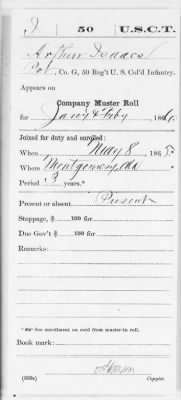 I 50 U.S.C.T.
Arthur Isaacs
Pvt, Co. G, 50 Reg't U. S. Col'd Infantry.
Appears on
Company Muster Roll
for Jan'y & Feby, 1866.
Joined for duty and enrolled:
When May 8, 1865.
Where Montgomery, Ala
Period 3 years.*
Present or absent Present
Stoppage, $ 100 for
Due Gov't $ 100 for
Remarks:
* See enrollment on card from muster-in roll.
Book mark:
(858c) Copyist.